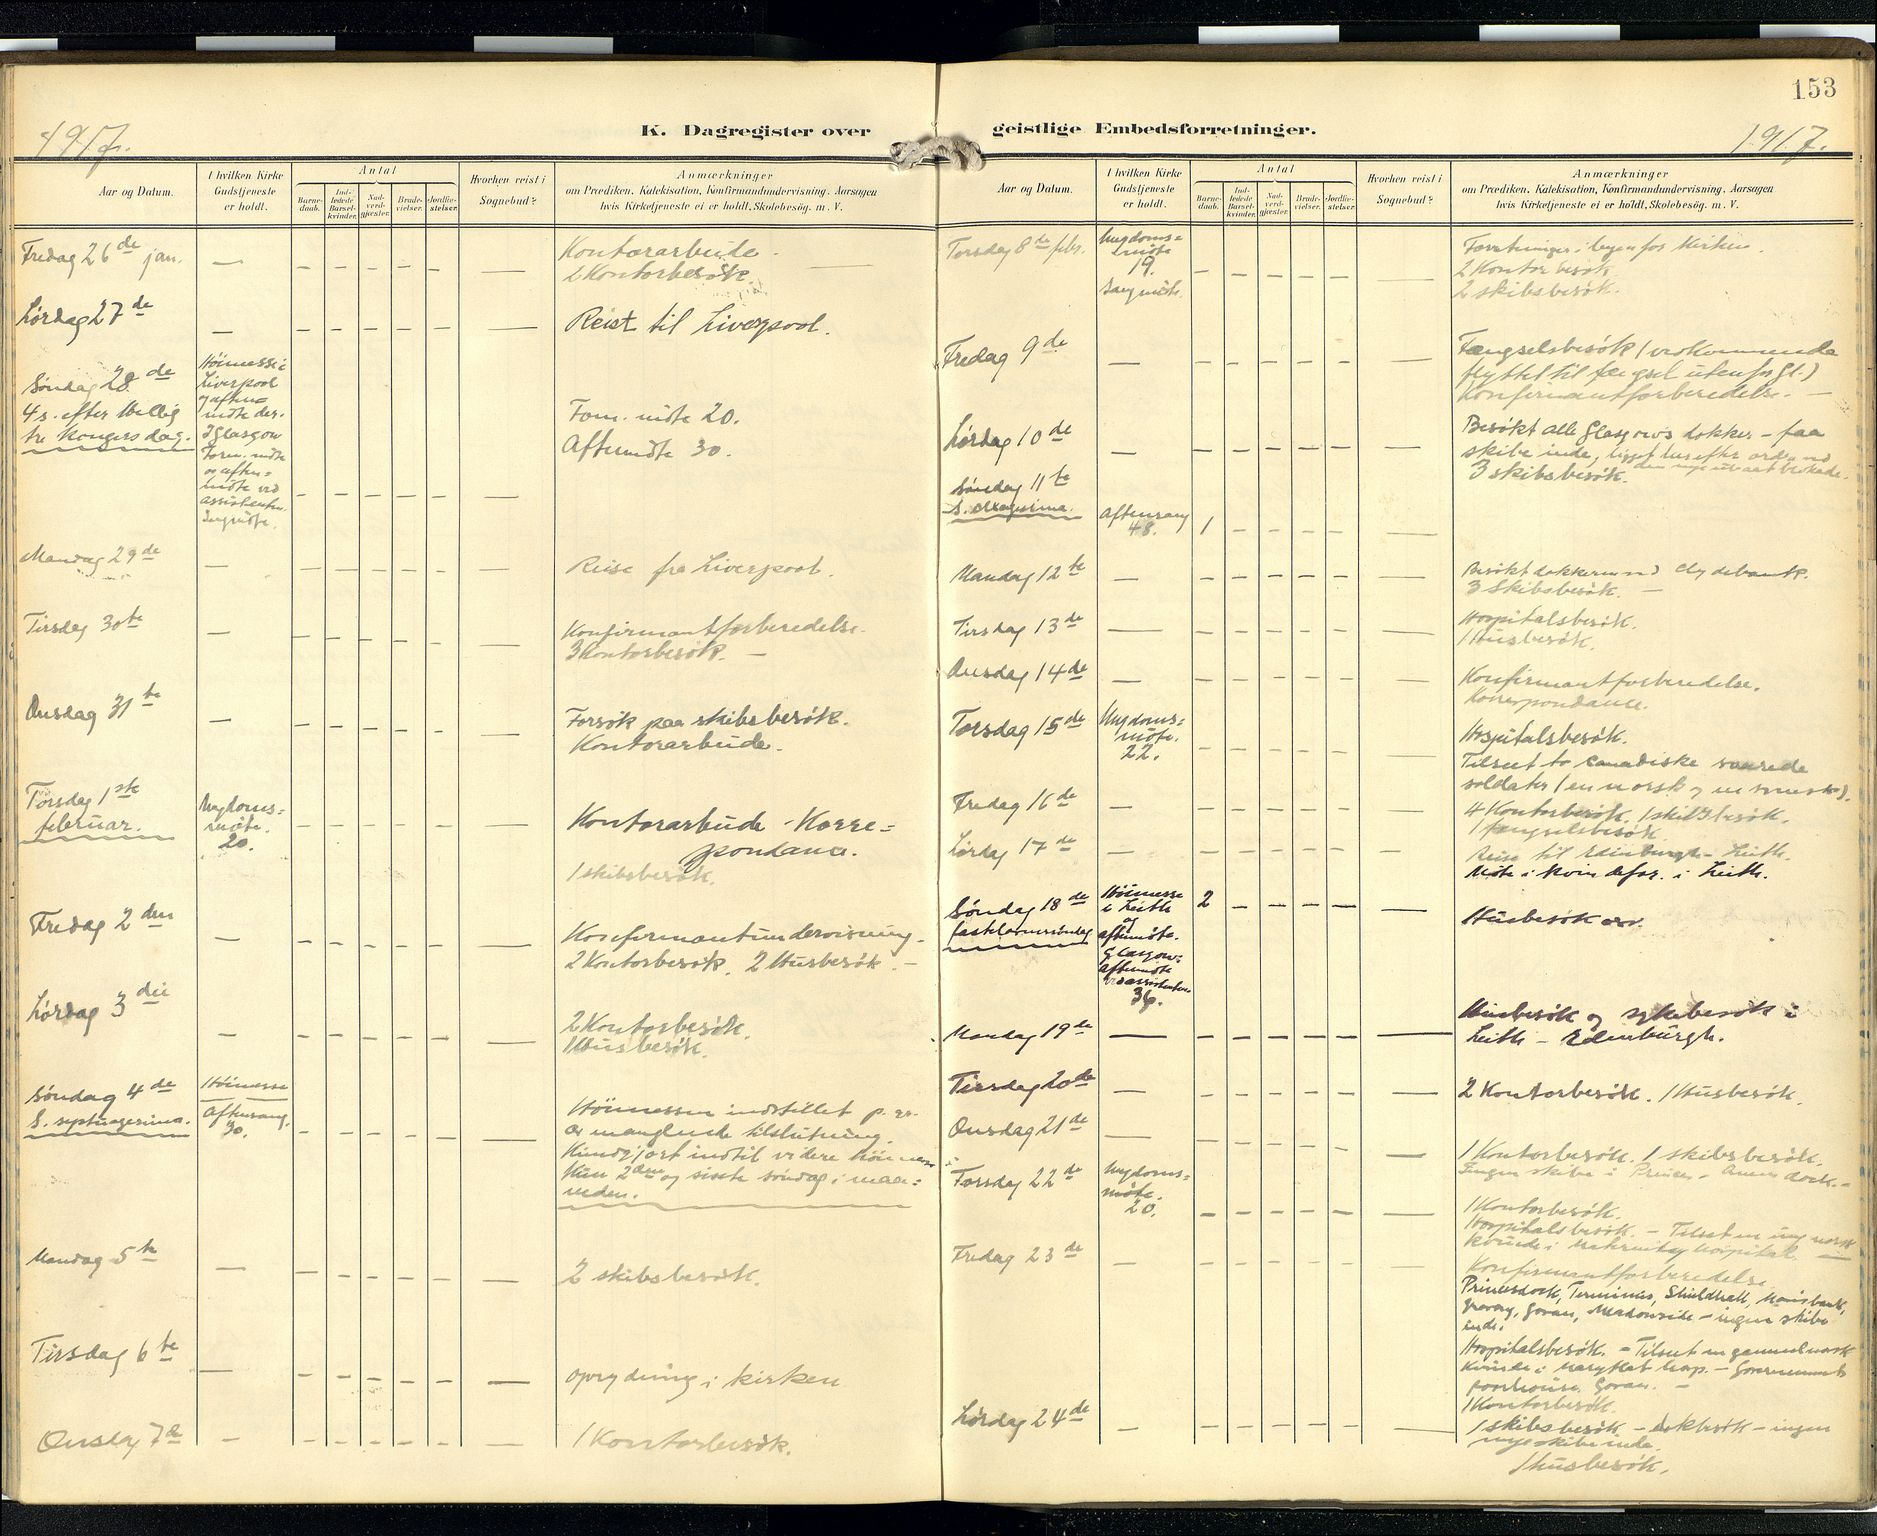 153
1917.
1917.
K. Dagregister over geistlige Embedsforretninger.
Aar og Datum.
I hvilken Kirke Gudstjeneste er holdt.
Antal
Barnedaab.
Indledede Barselkvinder.
Nadverdgjester.
Brudevielser.
Jordfæstelser.
Hvorhen reist i Sognebud?
Anmærkninger
om Prædiken, Katekisation, Konfirmandundervisning, Aarsagen
hvis Kirketjeneste ei er holdt, Skolebesøg. m. V.
Fredag 26de jan. — — — — — — —
Kontorarbeide.
2 Kontorbesök.
Lørdag 27de — — — — — — —
Reist til Liverpool.
Søndag 28de
4 s. efter Hellig
tre Kongers dag.
Höimesse i
Liverpool
og aften=
möte der.
I Glasgow
Form. möte
og aften=
möte ved
assistenten.
— — — — — —
Form. möte 20.
Aftenmöte 30.
Mandag 29de — — — — — — —
Reise fra Liverpool.
Tirsdag 30te — — — — — — —
Konfirmantforberedelse.
3 Kontorbesök. —
Onsdag 31te — — — — — — —
Forsök paa skibsbesök.
Kontorarbeide.
Torsdag 1ste
februar.
Ungdoms=
möte.
20.
— — — — — —
Kontorarbeide - Korre=
pondance.
1 skibsbesök.
Fredag 2den — — — — — — —
Konfirmantundervisning.
2 Kontorbesök. 2 Husbesök. —
Lørdag 3die — — — — — — —
2 Kontorbesök.
1 Husbesök.
Søndag 4de
S. septuagesima.
Höimesse
Aftensang.
30.
— — — — — —
Höimessen indstillet p. gr.
av manglende tilslutning.
Kundgjort indtil videre Höimesse
kun 2den og siste söndag i maa=
neden.
Mandag 5te — — — — — — —
2 skibsbesök.
Tirsdag 6te — — — — — — —
oprydning i kirken
Onsdag 7de — — — — — — —
1 Kontorbesök.
Aar og Datum.
I hvilken Kirke Gudstjeneste er holdt.
Antal
Barnedaab.
Indledede Barselkvinder.
Nadverdgjester.
Brudevielser.
Jordfæstelser.
Hvorhen reist i Sognebud?
Anmærkninger
om Prædiken, Katekisation, Konfirmandundervisning, Aarsagen
hvis Kirketjeneste ei er holdt, Skolebesøg. m. V.
Torsdag 8de febr.
Ungdoms=
möte
19.
Sangmöte.
— — — — — —
Forretninger i byen for Kirken.
2 Kontorbesök
2 skibsbesök.
Fredag 9de — — — — — — —
Fængselsbesök (vedkommende
flyttet til fængsel utenfor Gl.)
Konfirmantforberedelse. —
Lørdag 10de — — — — — — —
Besökt alle Glasgows dokker - faa
skibe inde, ligget her efter ordre ved
den nye ubaatblokade.
3 skibsbesök.
Søndag 11te
S. sexagesima.
Aftensang
48.
1 — — — — —
Mandag 12te — — — — — — —
Besökt dokkerne ved Clydebank.
3 Skibsbesök. —
Tirsdag 13de — — — — — — —
Hospitalsbesök.
1 Husbesök.
Onsdag 14de — — — — — — —
Konfirmantforberedelse.
Korrespondance.
Torsdag 15de
Ungdoms=
möte.
22.
— — — — — —
Hospitalsbesök.
Tilseet to canadiske saarede
soldater (en norsk og en svensk).
Fredag 16de — — — — — — —
4 Kontorbesök. 1 skibsbesök.
1 fængselsbesök.
Lørdag 17de — — — — — — —
Reise til Edinburgh - Leith.
Möte i kvindefor. i Leith.
Søndag 18de
fastelavnssöndag
Höimesse
i Leith
og
aftenmöte.
Glasgow:
aftenmöte
ved assistenten.
36.
2 — — — — —
Husbesök osv.
Mandag 19de — — — — — — —
Husbesök og sykebesök i
Leith - Edinburgh.
Tirsdag 20de — — — — — — —
2 Kontorbesök. 1 Husbesök.
Onsdag 21de — — — — — — —
1 Kontorbesök. 1 skibsbesök.
Ingen skibe i Princes- dock. -
Torsdag 22de
Ungdoms=
möte.
20.
— — — — — —
1 Kontorbesök.
Hospitalsbesök. - Tilset en ung norsk
kvinde i Maternity Hospital. —
Fredag 23de — — — — — — —
Konfirmantforberedelse
Princesdock, Terminus, Shieldhall,
Govan, Meadowside - ingen skibe
inde.
Hospitalsbesök. - Tilset en gammel norsk
kvinde i hosp. - Government
poorhouse. Govan. -
Lørdag 24de — — — — — — —
1 Kontorbesök.
1 skibsbesök - dokbesök - ingen
nye skibe inde.
1 husbesök.